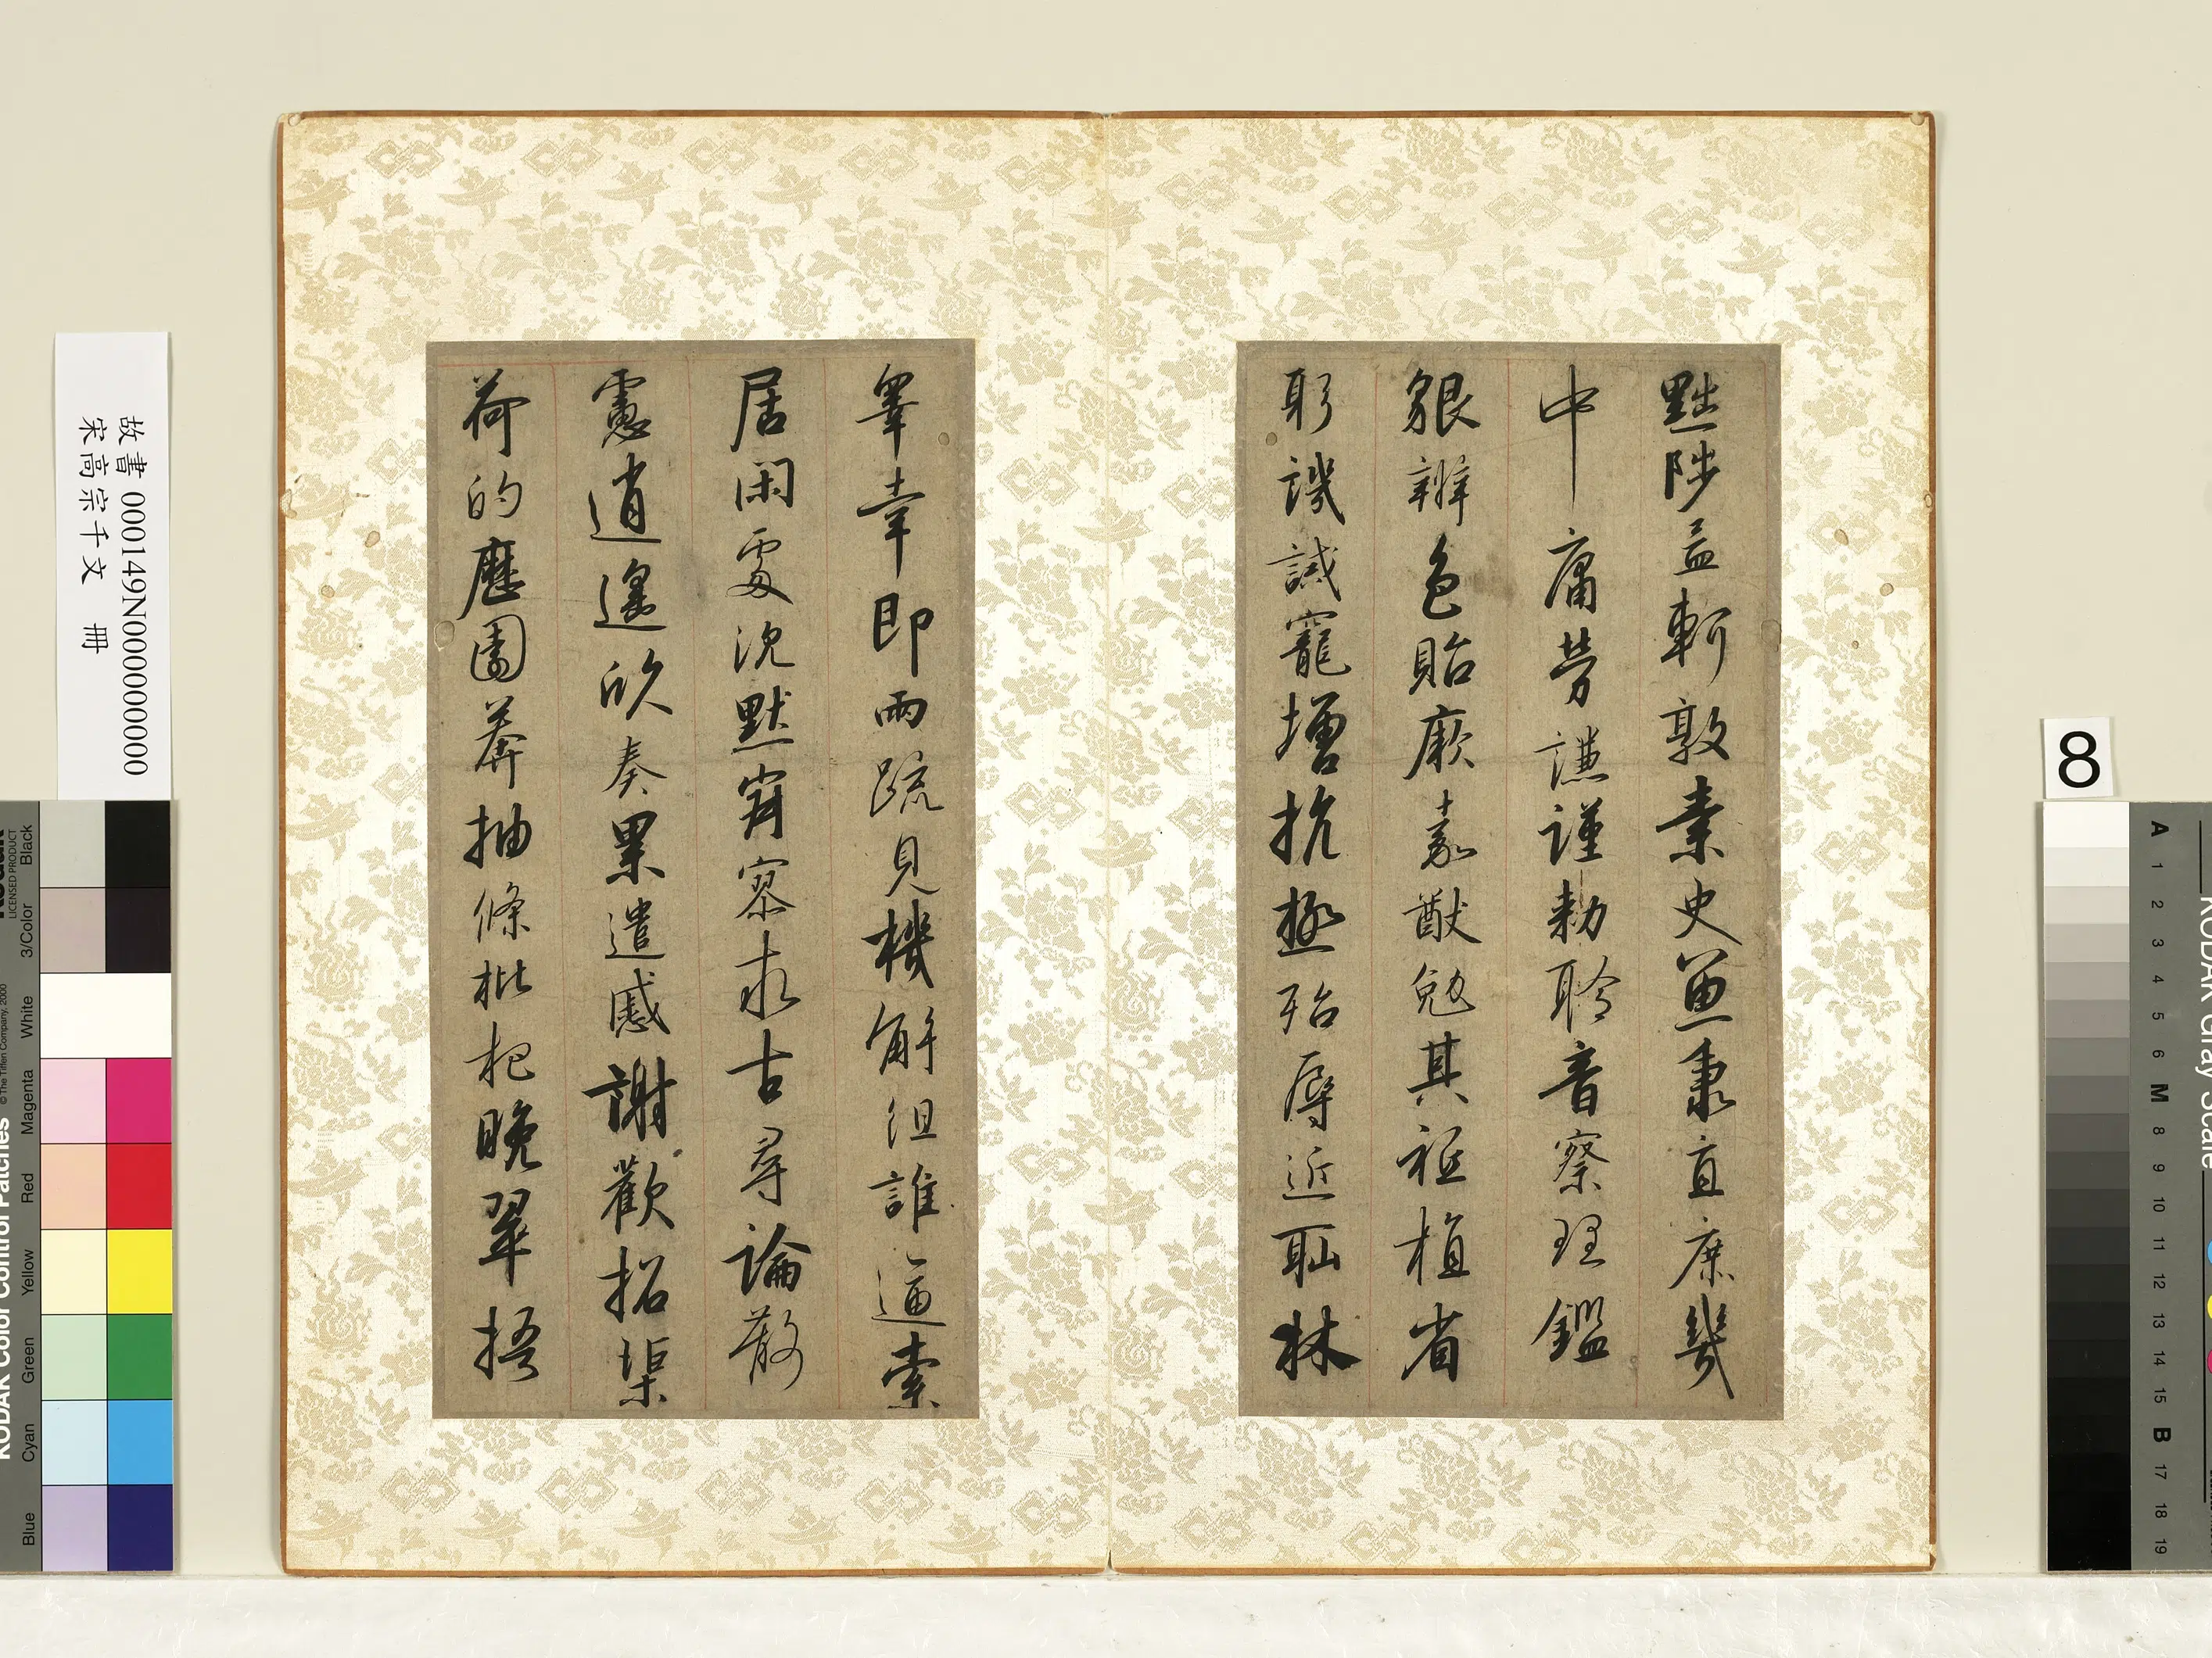 黜陟孟軻敦素史魚秉直庶幾
中庸勞謙謹勑聆音察理鑑
貌辨色貽厥嘉猷勉其祗植省
躬譏誡寵增抗極殆辱近耻林
睾幸即兩疏見機解組誰逼索
居閑處沉默寂寥求古尋論散
慮逍遙欣奏累遣慼謝歡招渠
荷的歷園莽抽條枇杷晚翠梧
故書 000149N000000000
宋高宗千文 冊
8
KODAK Color Control Patches
LICENSED PRODUCT
© The Tiffen Company, 2000
Blue Cyan Green Yellow Red Magenta White 3/Color Black
KODAK Gray Scale
A 1 2 3 4 5 6 M 8 9 10 11 12 13 14 15 B 17 18 19